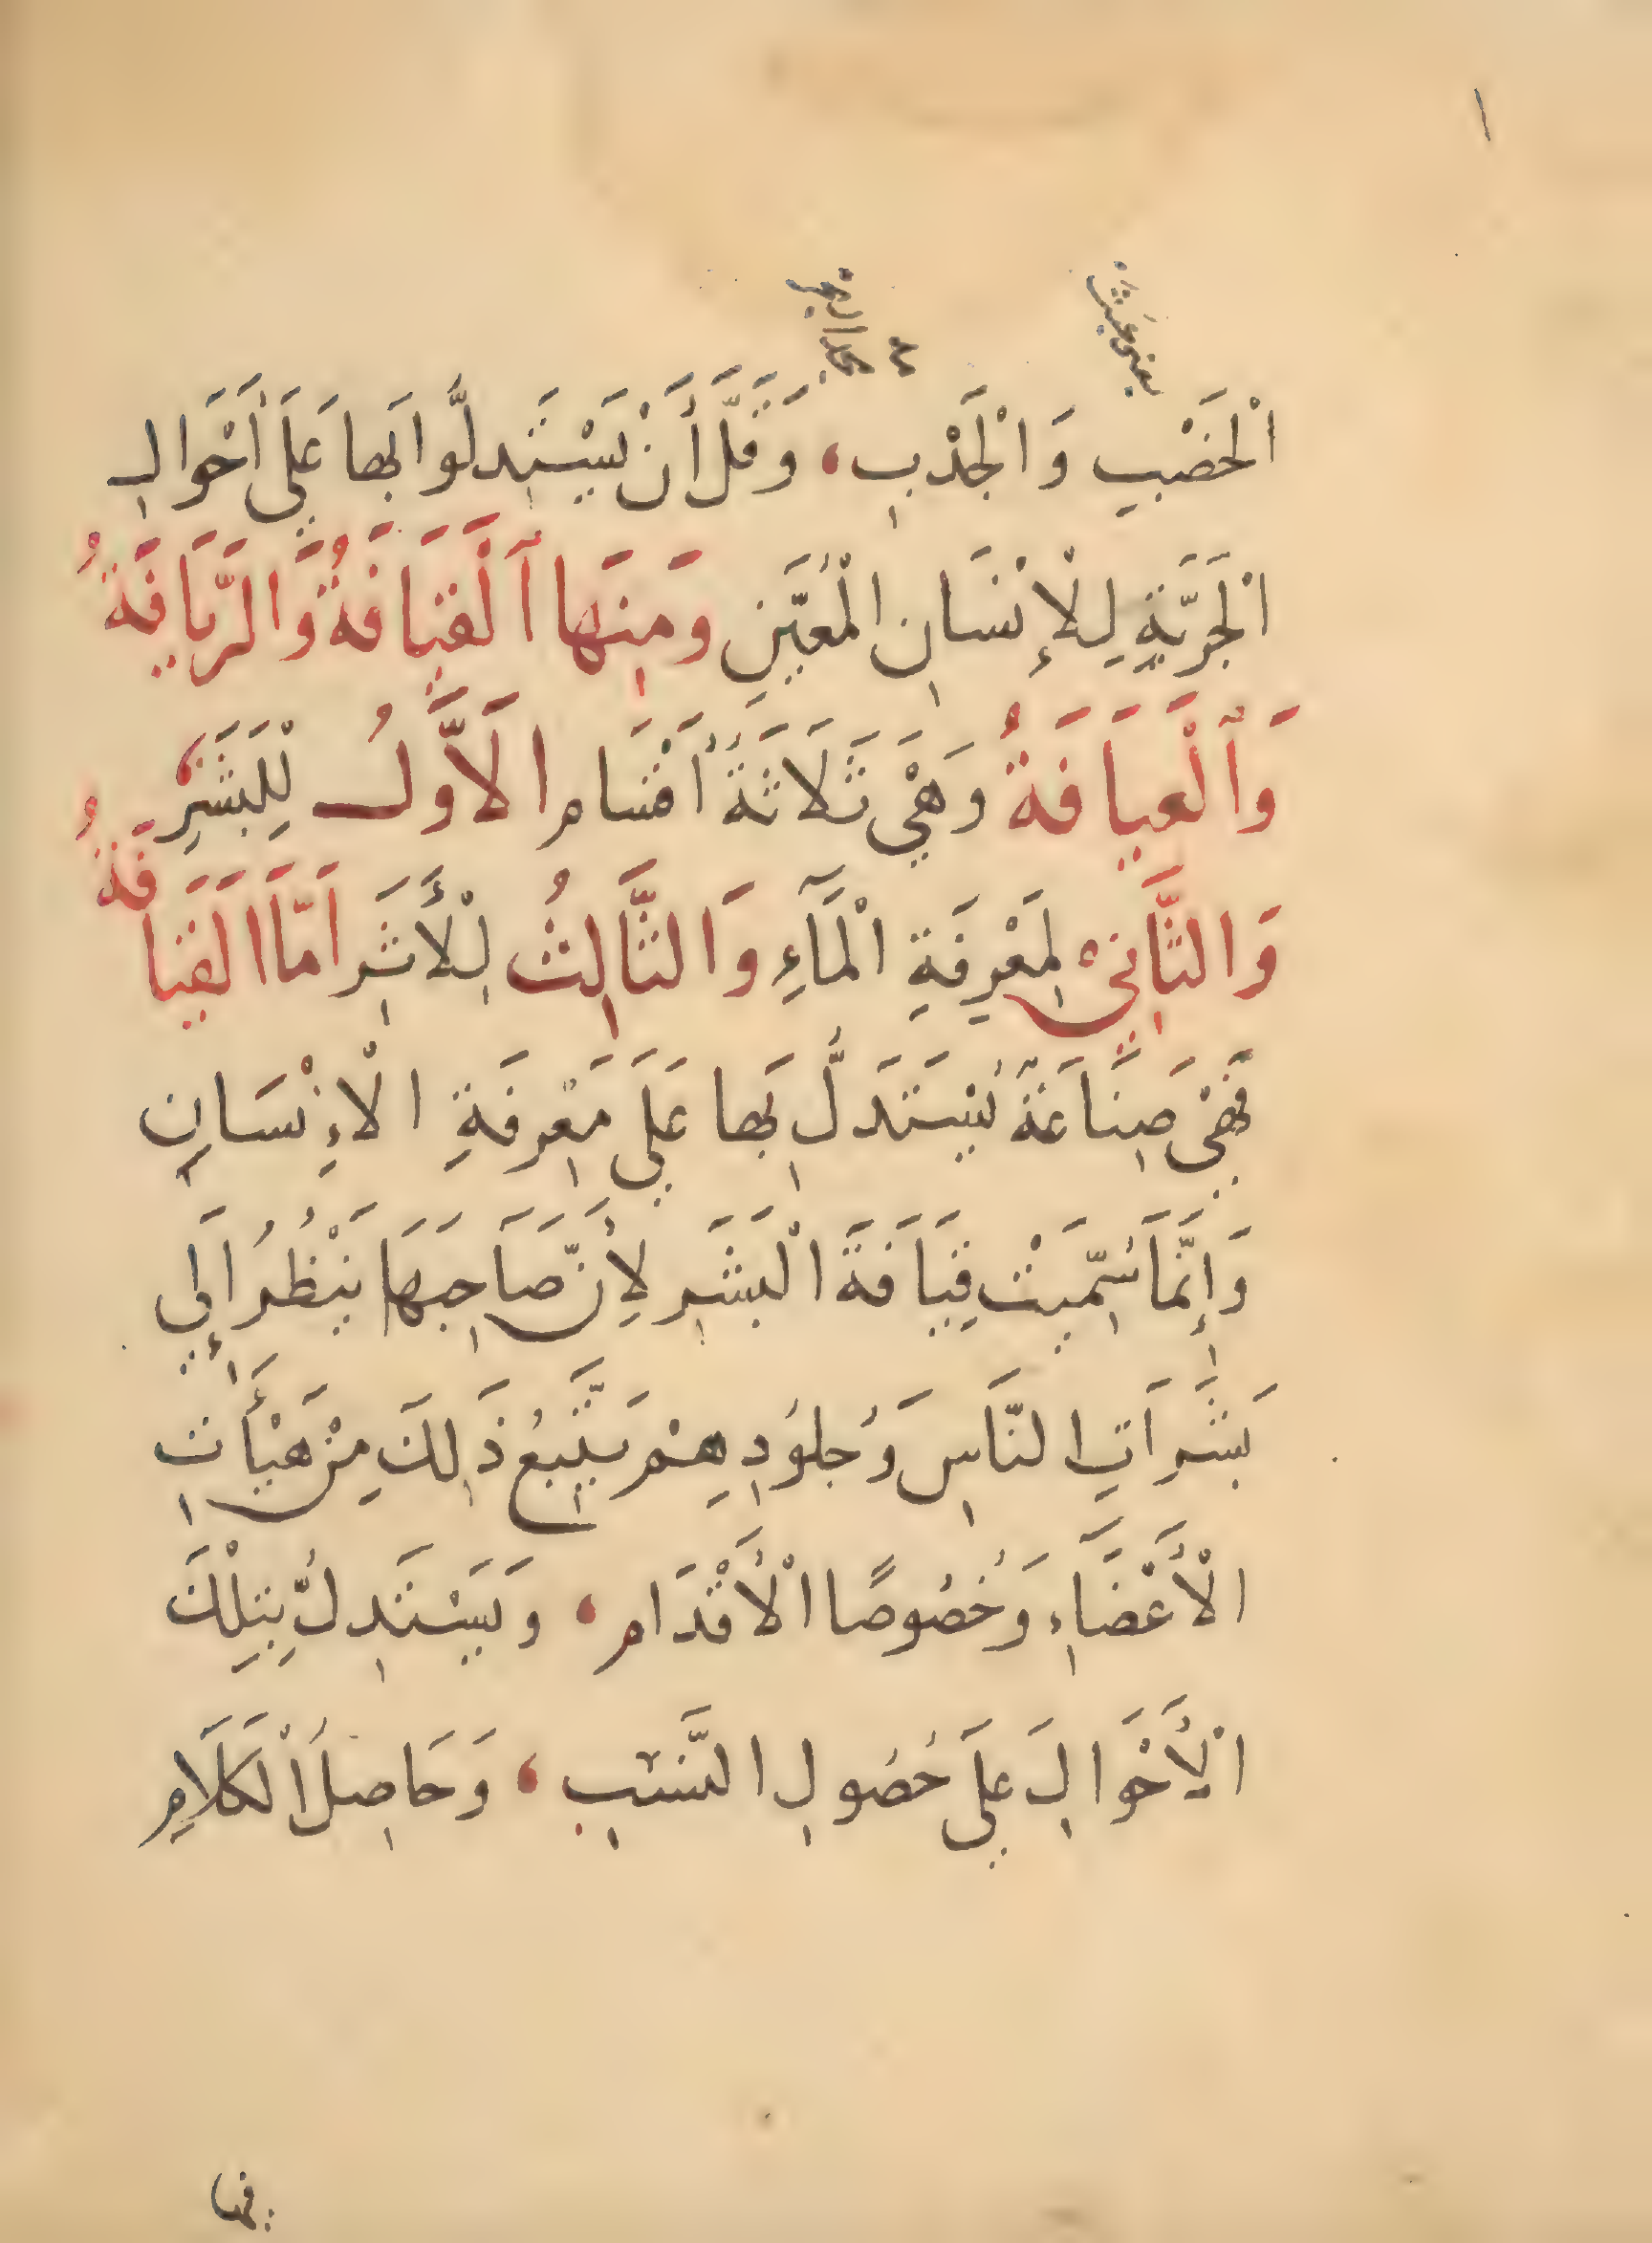 ١
الْخَصْبِ وَالْجَدْبِ، وَقَلَّ أَنْ يَسْتَدِلُّوا بِهَا عَلَى أَحْوَالِ
الْجَرِيَّةِ لِلْإِنْسَانِ الْمُعَيَّنِ وَمِنْهَا اَلْقِيَافَةُ وَالرِّيَافَةُ
وَالْعِيَافَةُ وَهِيَ ثَلَاثَةُ أَقْسَامِ الْاَوَّلُ لِلْبَشَرِ،
وَالثَّانِيْ لِمَعْرِفَةِ الْمَآءِ وَالثَّالِثُ لِلْأَثَرِ اَمَّا الْقِيَافَةُ
فَهِيَ صِنَاعَةٌ يُسْتَدَلُّ بِهَا عَلَى مَعْرِفَةِ الْاِنْسَانِ
وَإِنَّمَا سُمِّيَتْ قِيَافَةَ الْبَشَرِ لِأَنَّ صَاحِبَهَا يَنْظُرُ إِلَى
بَشَرَاتِ النَّاسِ وَجُلُوُدِهِمْ يَتَّبِعُ ذَلِكَ مِنْ هَيْأَاتِ
الْأَعْضَاءِ وَخُصُوصًا الْأَقْدَامِ، وَيَسْتَدِلُّ بِتِلْكَ
الْأَحْوَالِ عَلَى حُصُولِ النَّسَبِ، وَحَاصِلُ الْكَلَامِ
فيها